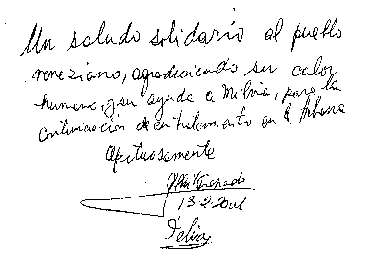 Un saludo solidario al pueblo
veneziano, agradeciendo su calor
humano, y su ayuda a Milvia, para la
continuación de su tratamiento en la Habana
Afectuosamente
13-2-2001